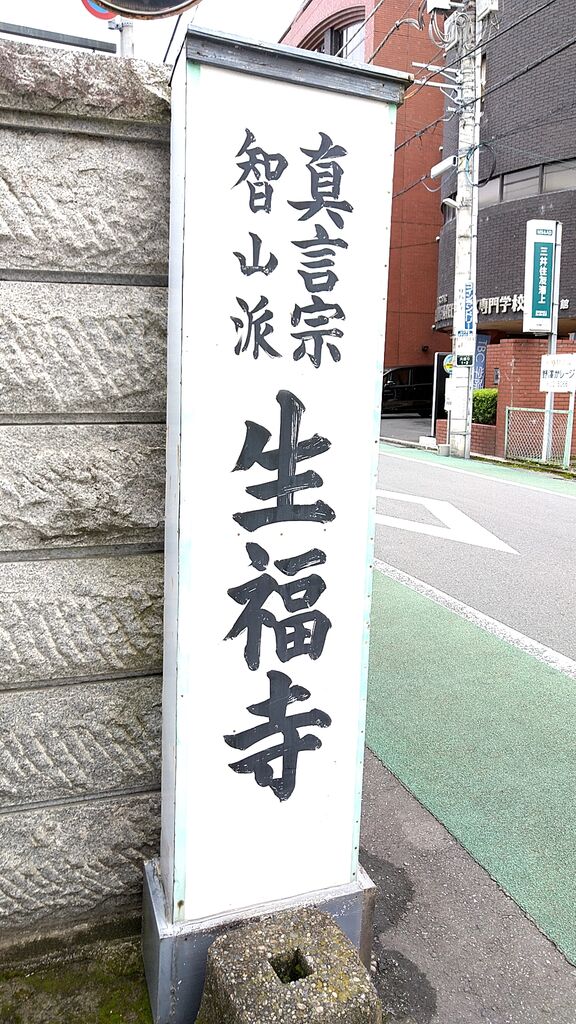 真言宗
智山派
生福寺
三井住友海上
専門学校